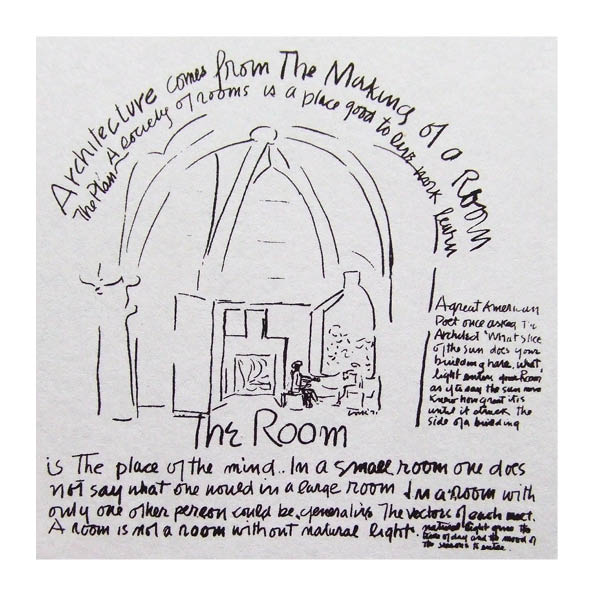 Architecture comes from The Making of a Room
The Plan A society of rooms is a place good to live work learn
A great American
Poet once asked the
Architect "What slice
of the sun does your
building have. what
light enters your Room
as if to say the sun never
knew how great it is
until it struck the
side of a building
The Room
is The place of the mind.. In a small room one does
not say what one would in a large room In a room with
only one other person could be generative The vectors of each meet.
A room is not a room without natural light.
natural light gives the
time of day and the mood of
the seasons to enter.